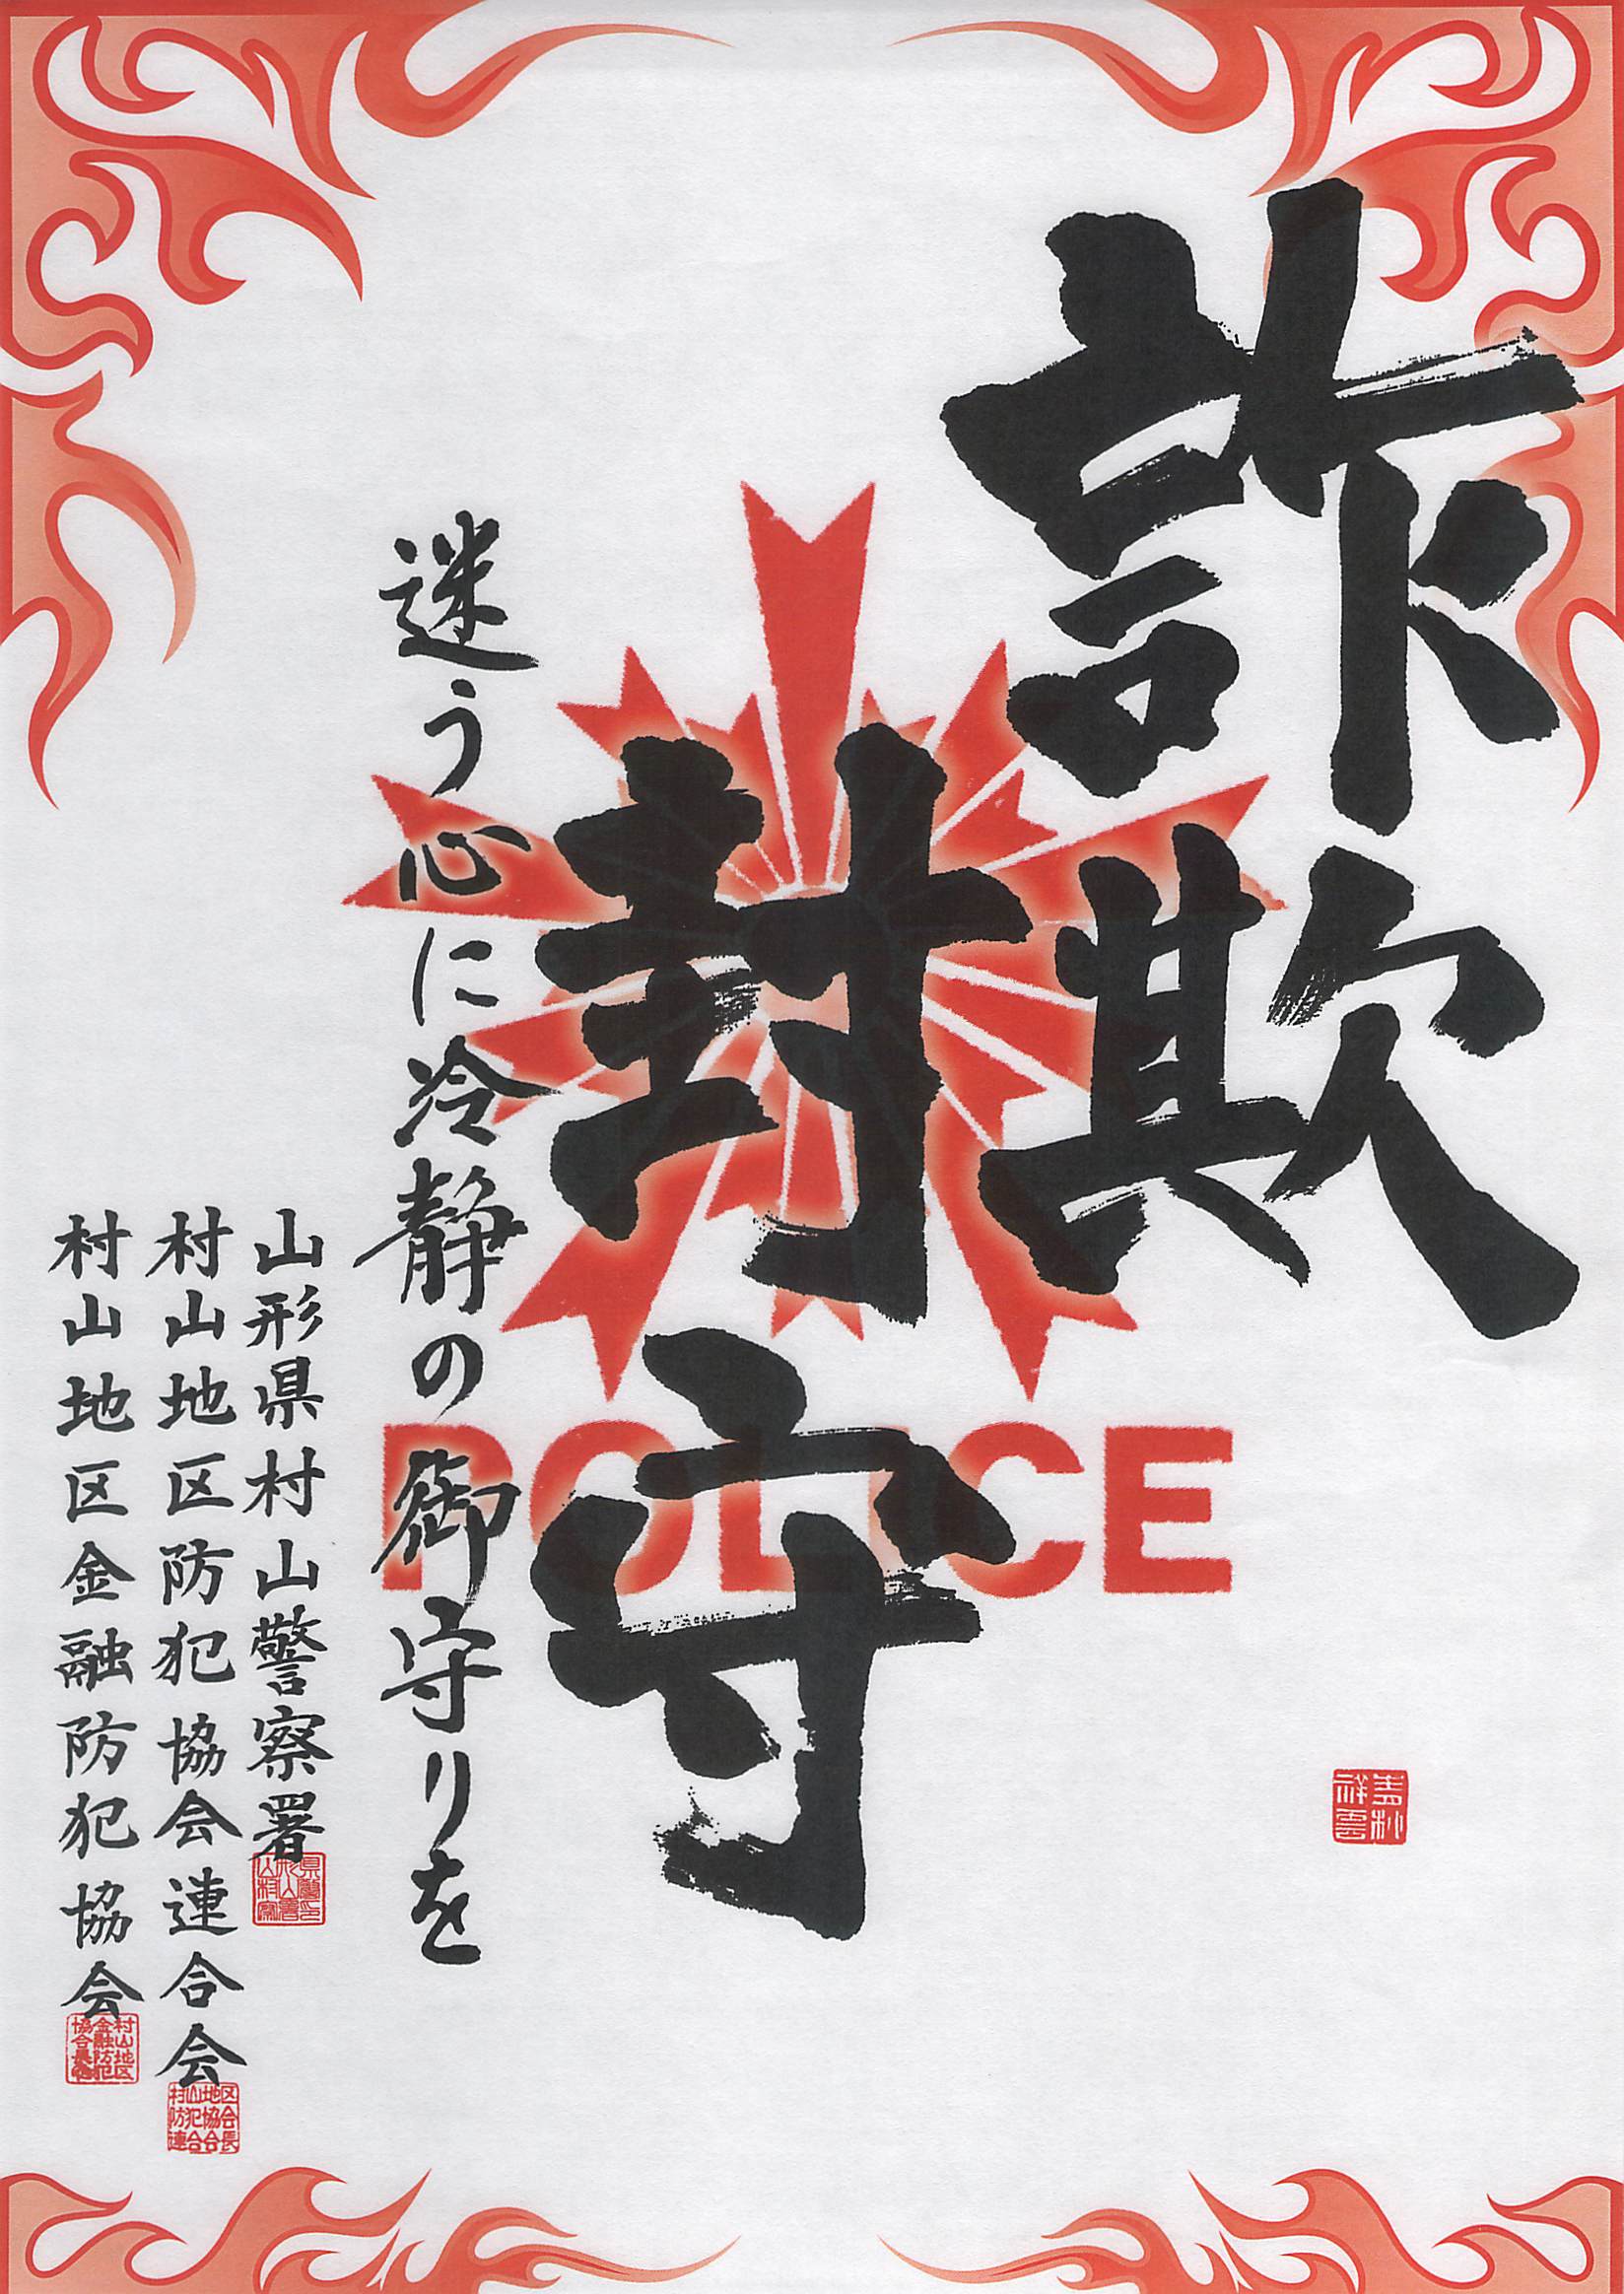 詐欺
封守
迷う心に冷静の御守りを
POLICE
山形県村山警察署
村山地区防犯協会連合会
村山地区金融防犯協会